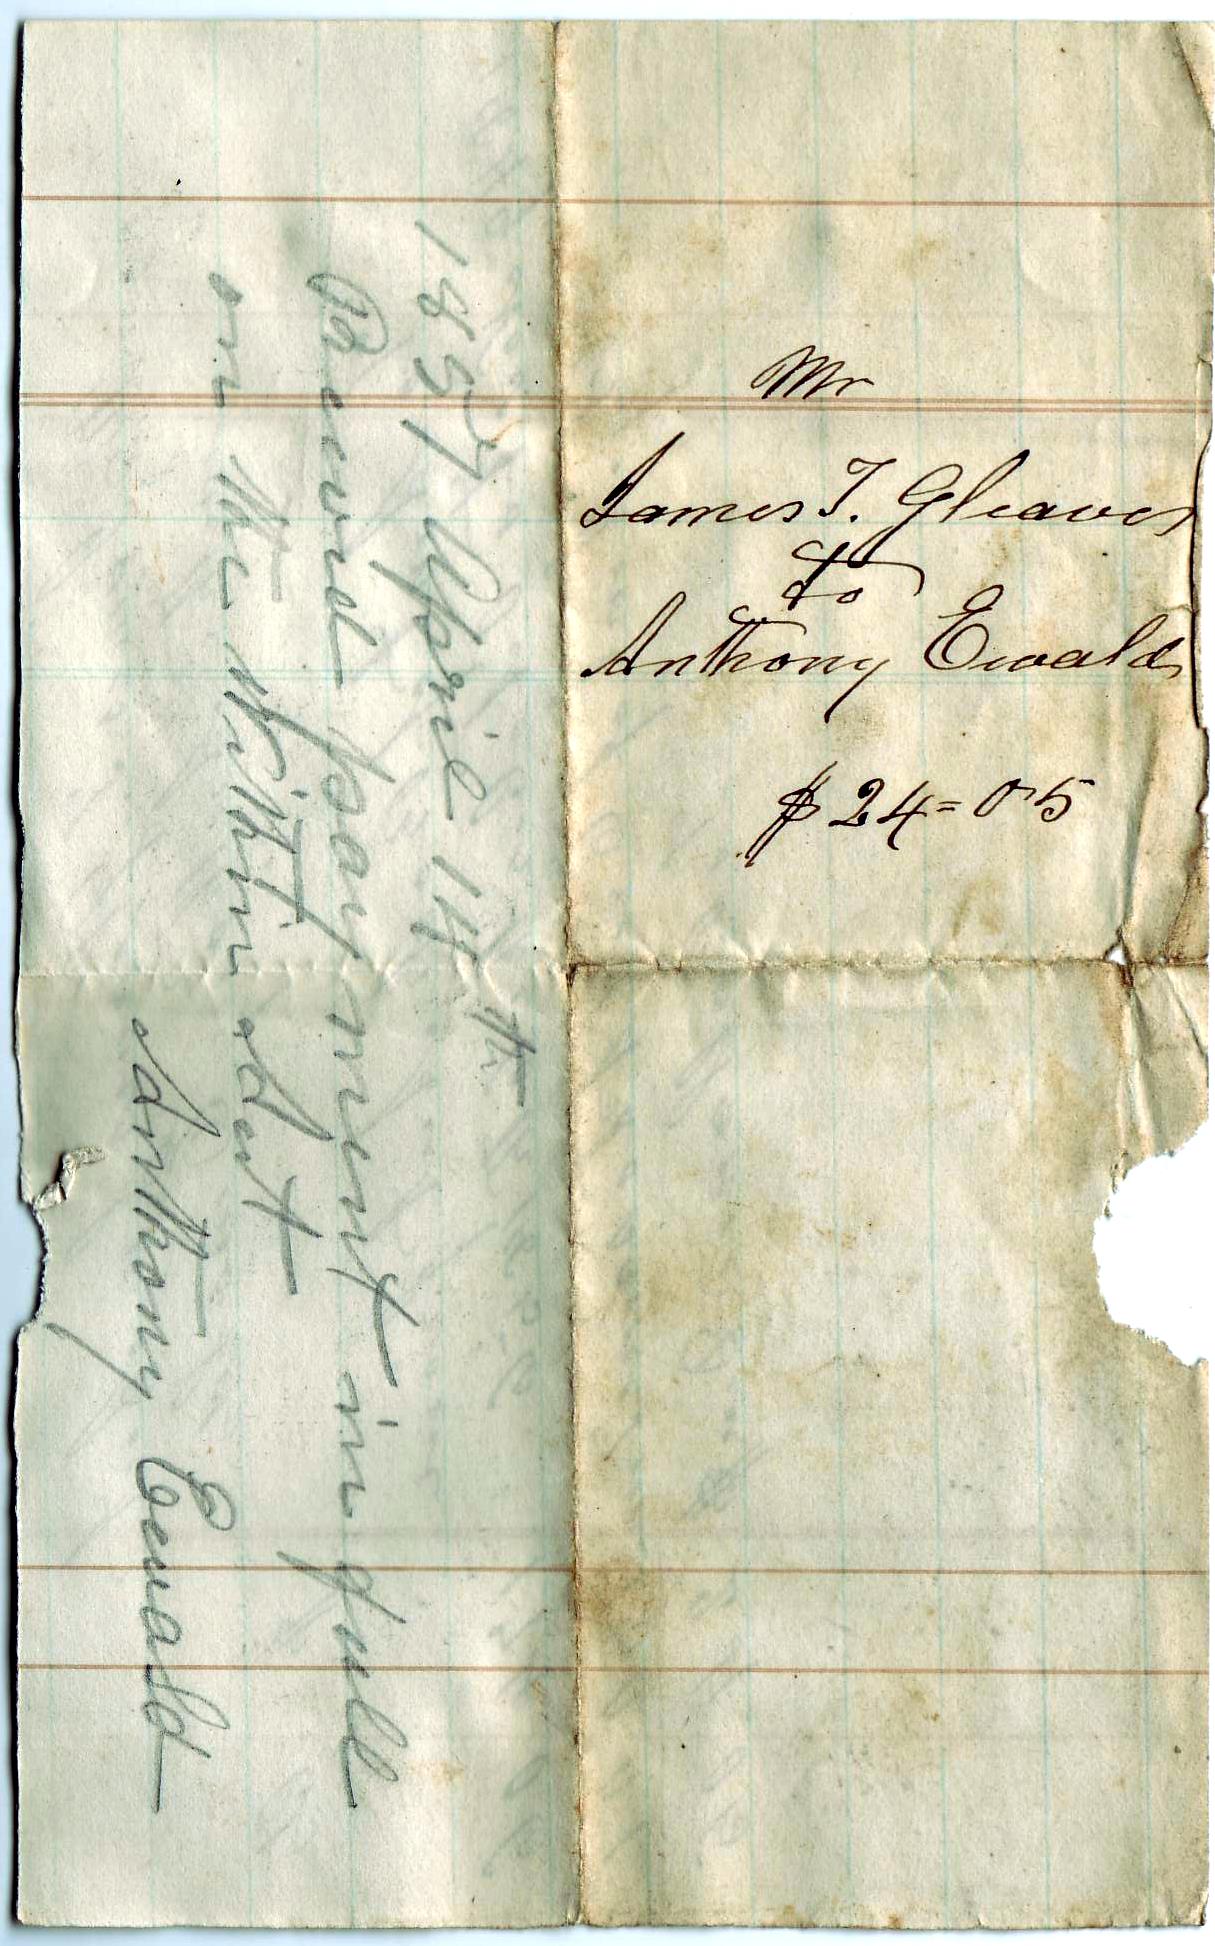 Mr
James T. Gleaves
to
Anthony Ewald
$24=05
1857 April 14th
Recevd payment in full
on the within
Anthony Ewald